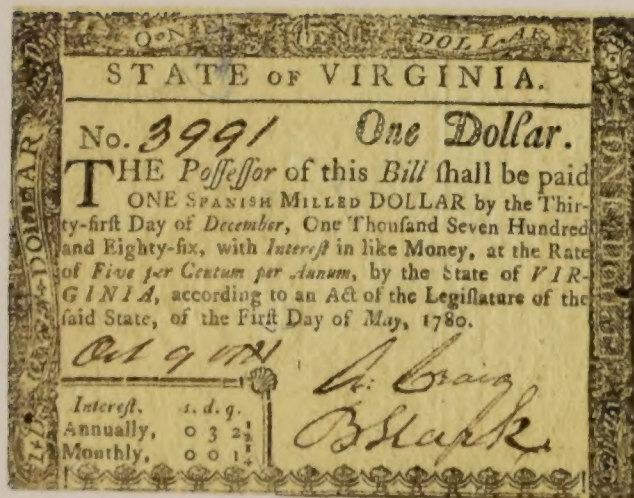 ONE DOLLAR
STATE OF VIRGINIA.
No. 3991 One Dollar.
THE Poſſeſſor of this Bill ſhall be paid
ONE SPANISH MILLED DOLLAR by the Thir-
ty-firſt Day of December, One Thouſand Seven Hundred
and Eighty-ſix, with Intereſt in like Money, at the Rate
of Five per Centum per Annum, by the State of VIR-
GINIA, according to an Act of the Legiſlature of the
ſaid State, of the Firſt Day of May, 1780.
Craig
B Stark
Intereſt. s. d. q.
Annually, 0 3 2½
Monthly, 0 0 1¼
DOLLAR